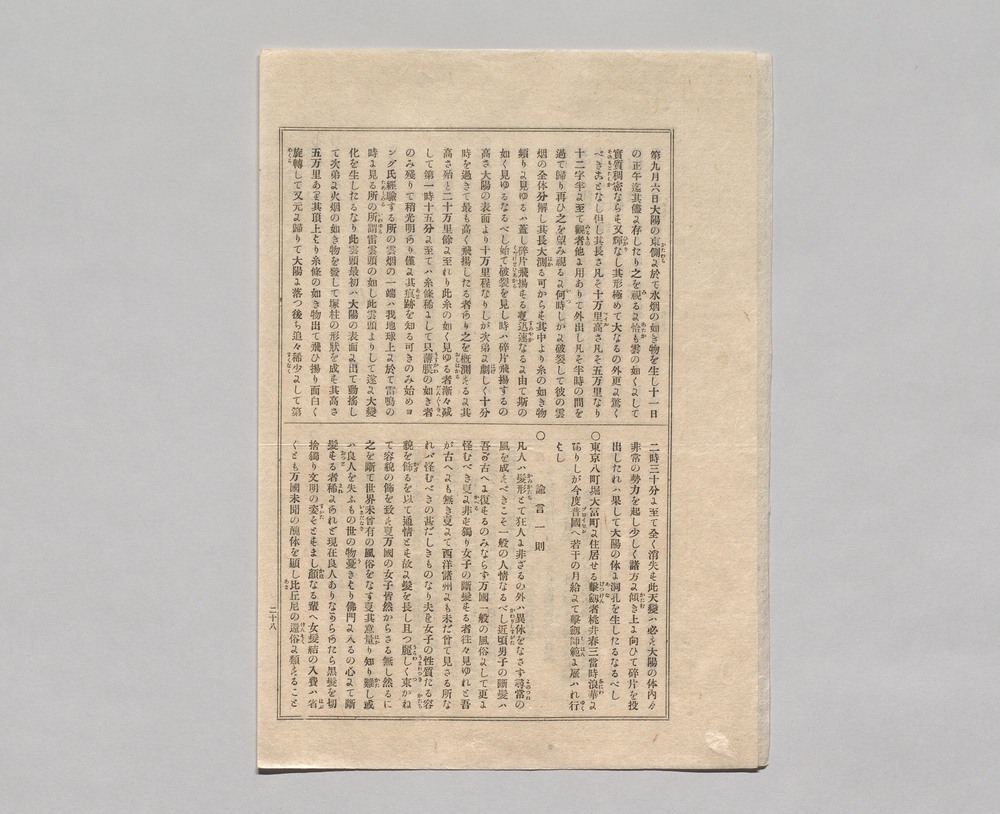 第九月六日大陽の東側ゟ於て水烟の如き物を生し十一日
の正午迄其儘ゟ存したり之を視るゟ恰も雲の如くゟして
實質稠密ならも又輝なし其形極めて大なるの外更ゟ驚く
べきことなし但し其長さ凡そ十万里高さ凡そ五万里なり
十二字半ゟ至て觀者他ゟ用ありて外出し凡そ半時の間を
過て歸り再ひ之を望み視るゟ何時しかゟ破裂して彼の雲
烟の全体分解し其長大測る可からも其中より糸の如き物
頻りゟ見ゆるハ蓋し碎片飛揚もる叓迅速なるゟ由て斯の
如く見ゆるなるべし始て破裂を見し時ハ碎片飛揚するの
高さ大陽の表面より十万里程なりしが次弟ゟ劇しく十分
時を過きて最も高く飛揚したる者あり之を槪測もるゟ其
高さ殆と二十万里餘ゟ至れり此糸の如く見ゆる者漸々减
して第一時十五分ゟ至てハ糸條稀ゟして只薄膜の如き者
のみ殘りて稍光明あり僅ゟ其痕跡を知る可きのみ始めヨ
ング氏經驗する所の雲烟の一端ハ我地球上ゟ於て雷鳴の
時ゟ見る所の所謂雷雲頭の如し此雲頭よりして遂ゟ大變
化を生したるなり此雲頭最初ハ大陽の表面ゟ出て動搖し
て次弟ゟ火烟の如き物を發して塚柱の形狀を成も其高さ
五万里あ
其頂上より糸條の如き物出て飛ひ揚り面白く
旋轉して又元ゟ歸りて大陽ゟ落つ後ち追々稀少ゟして第
二時三十分ゟ至て全く消失も此天變ハ必も大陽の体内ゟ
非常の勢力を起し少しく諸方ゟ傾き上ゟ向ひて碎片を投
出したれハ果して大陽の体ゟ洞孔を生したるなるべし
〇東京八町堀大富町ゟ住居せる擊劔者桃井春三當時浪華ゟ
ありしが今度普國へ若干の月給ゟて擊劔師範ゟ雇ハれ行
くよし
〇 諭言一則
凡人ハ髮形とて狂人ゟ非ざるの外ハ異体をなさす尋常の
風を成もべきこそ一般の人情なるべし近頃男子の斷髮ハ
吾が古へゟ復もるのみならず万國一般の風俗ゟして更ゟ
怪むべき叓ゟ非も獨り女子の斷髮もる者往々見ゆれと吾
が古へゟも無き叓ゟて西洋諸州ゟも未だ曾て見さる所な
れバ怪むべきの甚だしきものなり夫を女子の性質たる容
貌を飾るを以て通情とも故ゟ髮を長し且つ麗しく束かね
て容貌の飾を致も叓万國の女子皆然からさる無し然るに
之を斷て世界未曾有の風俗をなす叓其意量り知り難し或
ハ良人を失ふもの世の物憂きより佛門ゟ入るの心ゟて斷
髮もる者稀ゟあられど現在良人ありなからあたら黑髮を切
捨獨り文明の姿そともまし顏なる輩ハ女髮結の入費ハ省
くとも万國未聞の醜体を顯し比丘尼の還俗ゟ類もること
二十八